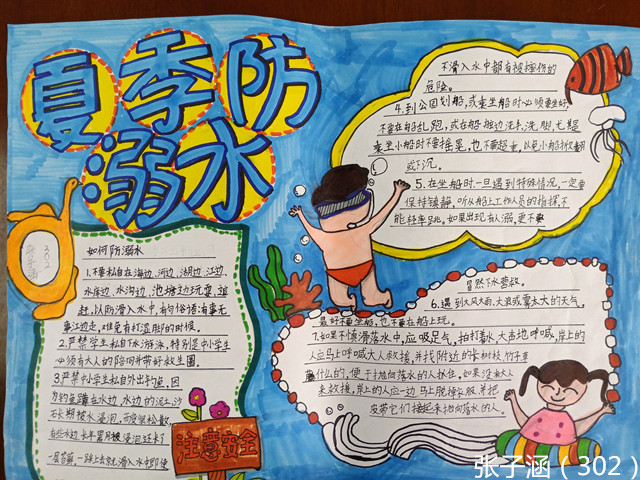 夏季防
溺水
302
如何防溺水
1.不要私自在海边、河边、湖边、江边、
水库边、水沟边、池塘边玩耍、追
赶，以防滑入水中，有句俗语：有事无
事江边走，难免有打湿脚的时候。
2.严禁学生私自下水游泳，特别是中小学生
必须有大人的陪同并带好救生圈。
3.严禁中小学生私自外出钓鱼，因
为钓鱼蹲在水边，水边的泥土沙
石长期被水浸泡，而变得松散，
有些水边长年累月被浸泡还长了
一层苔藓，一踩上去就滑入水中，即使
不滑入水中都有被撞伤的
危险。
4.到公园划船，或乘坐船时必须要坐好，
不要在船上乱跑，或在船舷边洗手、洗脚，尤其是
乘坐小船时不要摇晃，也不要超重，以免小船掀翻
或下沉。
5.在坐船时，一旦遇到特殊情况，一定要
保持镇静，听从船上工作人员的指挥，不
能轻率跳。如果出现有人溺，更不要
冒然下水营救。
6.遇到大风大雨、大浪或雾太大的天气，
最好不要坐船，也不要在船上玩。
7.如果不慎滑落水中，应吸足气，拍打着水，大声地呼喊，岸上的
人应马上呼喊大人救援，并找附近的长树枝、竹竿
什么的，便于抛向落水的人抓住。如果没有大人
来救援，岸上的人应一边马上脱掉衣服，并把
皮带它们接起来抛向落水的人。
注意安全
张子涵（302）